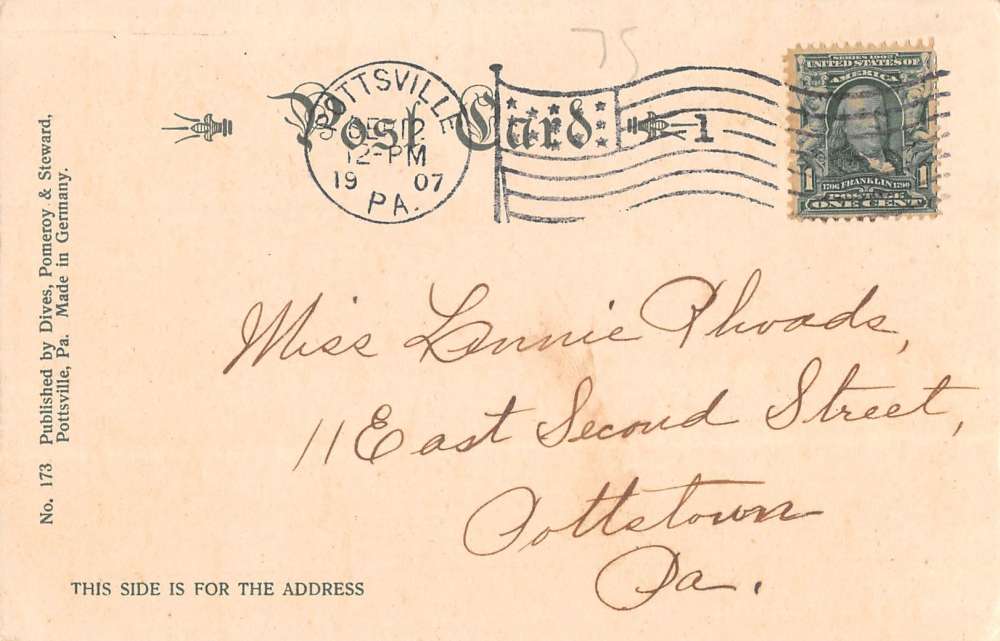 75
SERIES 1902
UNITED STATES OF
AMERICA
1 1
1706 FRANKLIN 1790
POSTAGE
ONE CENT
Post Card
POTTSVILLE
12-PM
19 07
PA.
1
Miss Rhoads,
11 East Second Street,
Pottstown
Pa.
No. 173 Published by Dives, Pomeroy & Steward,
Pottsville, Pa. Made in Germany.
THIS SIDE IS FOR THE ADDRESS